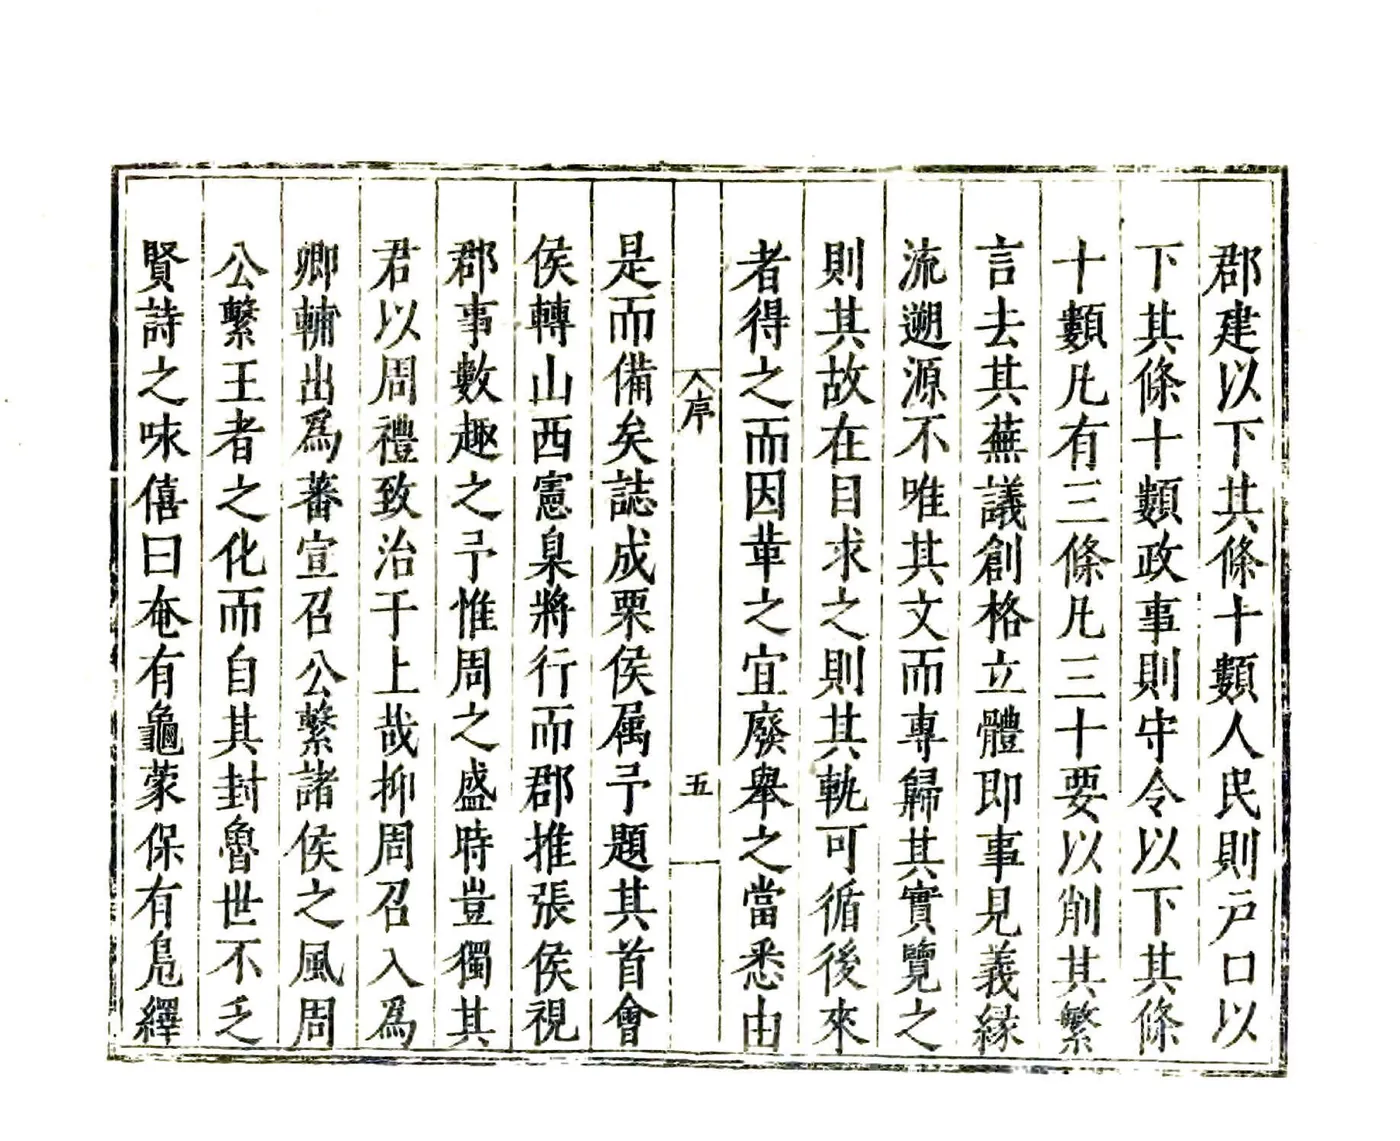 郡建以下其條十類人民則户口以
下其條十類政事則守令以下其條
十類凡有三條凡三十要以削其繁
言去其蕪議創格立體即事見義緣
流遡源不唯其文而專歸其實覽之
則其故在目求之則其軌可循後來
者得之而因革之宜廢舉之當悉由
序
五
是而備矣誌成栗侯属予題其首會
侯轉山西憲臬將行而郡推張侯視
郡事數趣之予惟周之盛時豈獨其
君以周禮致治于上哉抑周召入為
卿輔出為蕃宣召公繫諸侯之風周
公繫王者之化而自其封魯世不乏
賢詩之咏僖曰奄有龜蒙保有鳧繹